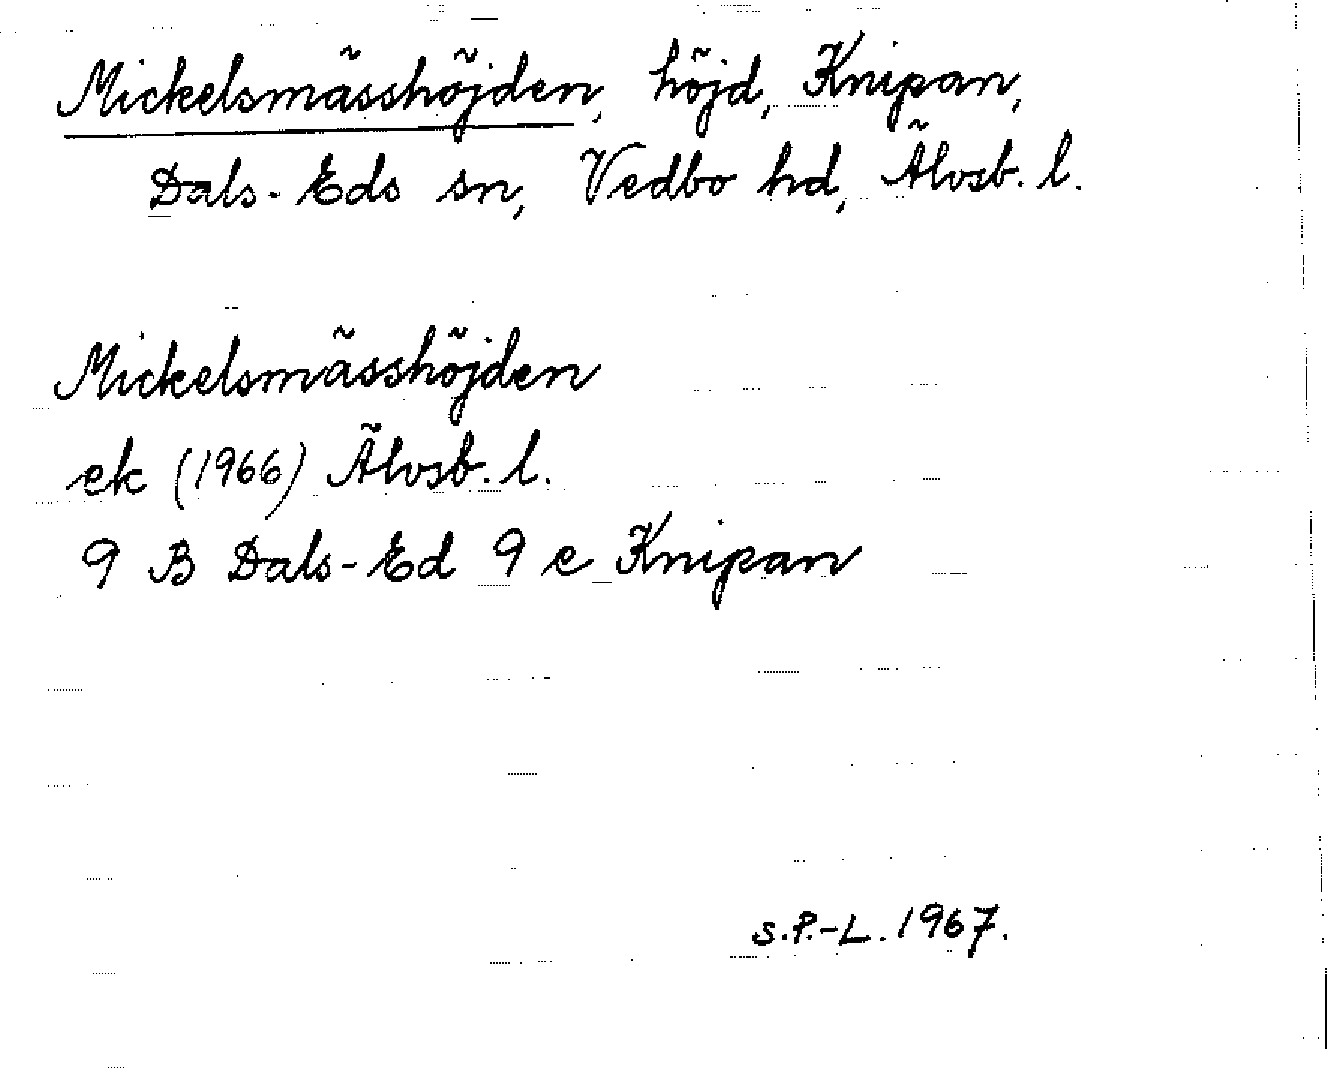 Mickelsmässhöjden, höjd, Knipan,
Dals-Eds sn, Vedbo hd, Älvsb. l.
Mickelsmässhöjden
ek (1966) Älvsb. l.
9 B Dals-Ed 9 e Knipan
S.P.-L. 1967.